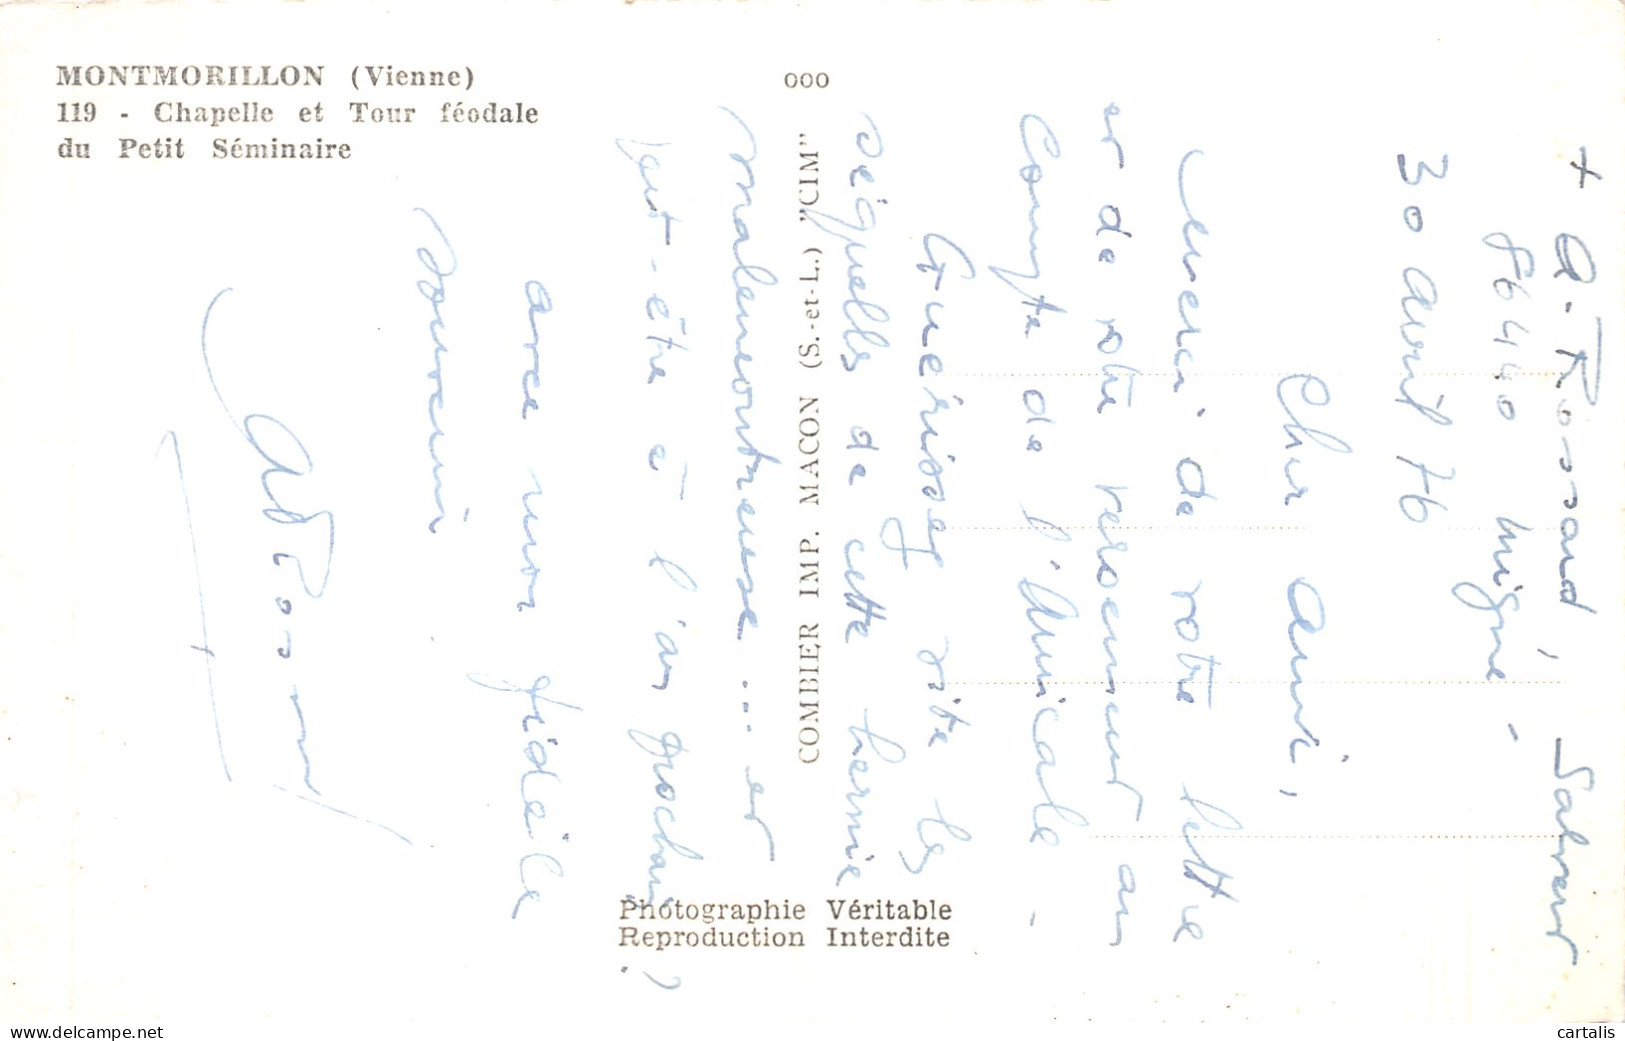 MONTMORILLON (Vienne)
119 - Chapelle et Tour féodale
du Petit Séminaire
000
COMBIER IMP. MACON (S.-et-L.) "CIM"
Photographie Véritable
Reproduction Interdite
+ A. Rossard, Salvert
86440 Migné -
30 Avril 76
Cher Ami,
Merci de votre lettre
et de votre versement au
Compte de l'Amicale -
Guérissez vite les
séquelles de cette hernie
malencontreuse... et
peut-être à l'an prochain ?
avec mon fidèle
souvenir.
www.delcampe.net
cartalis